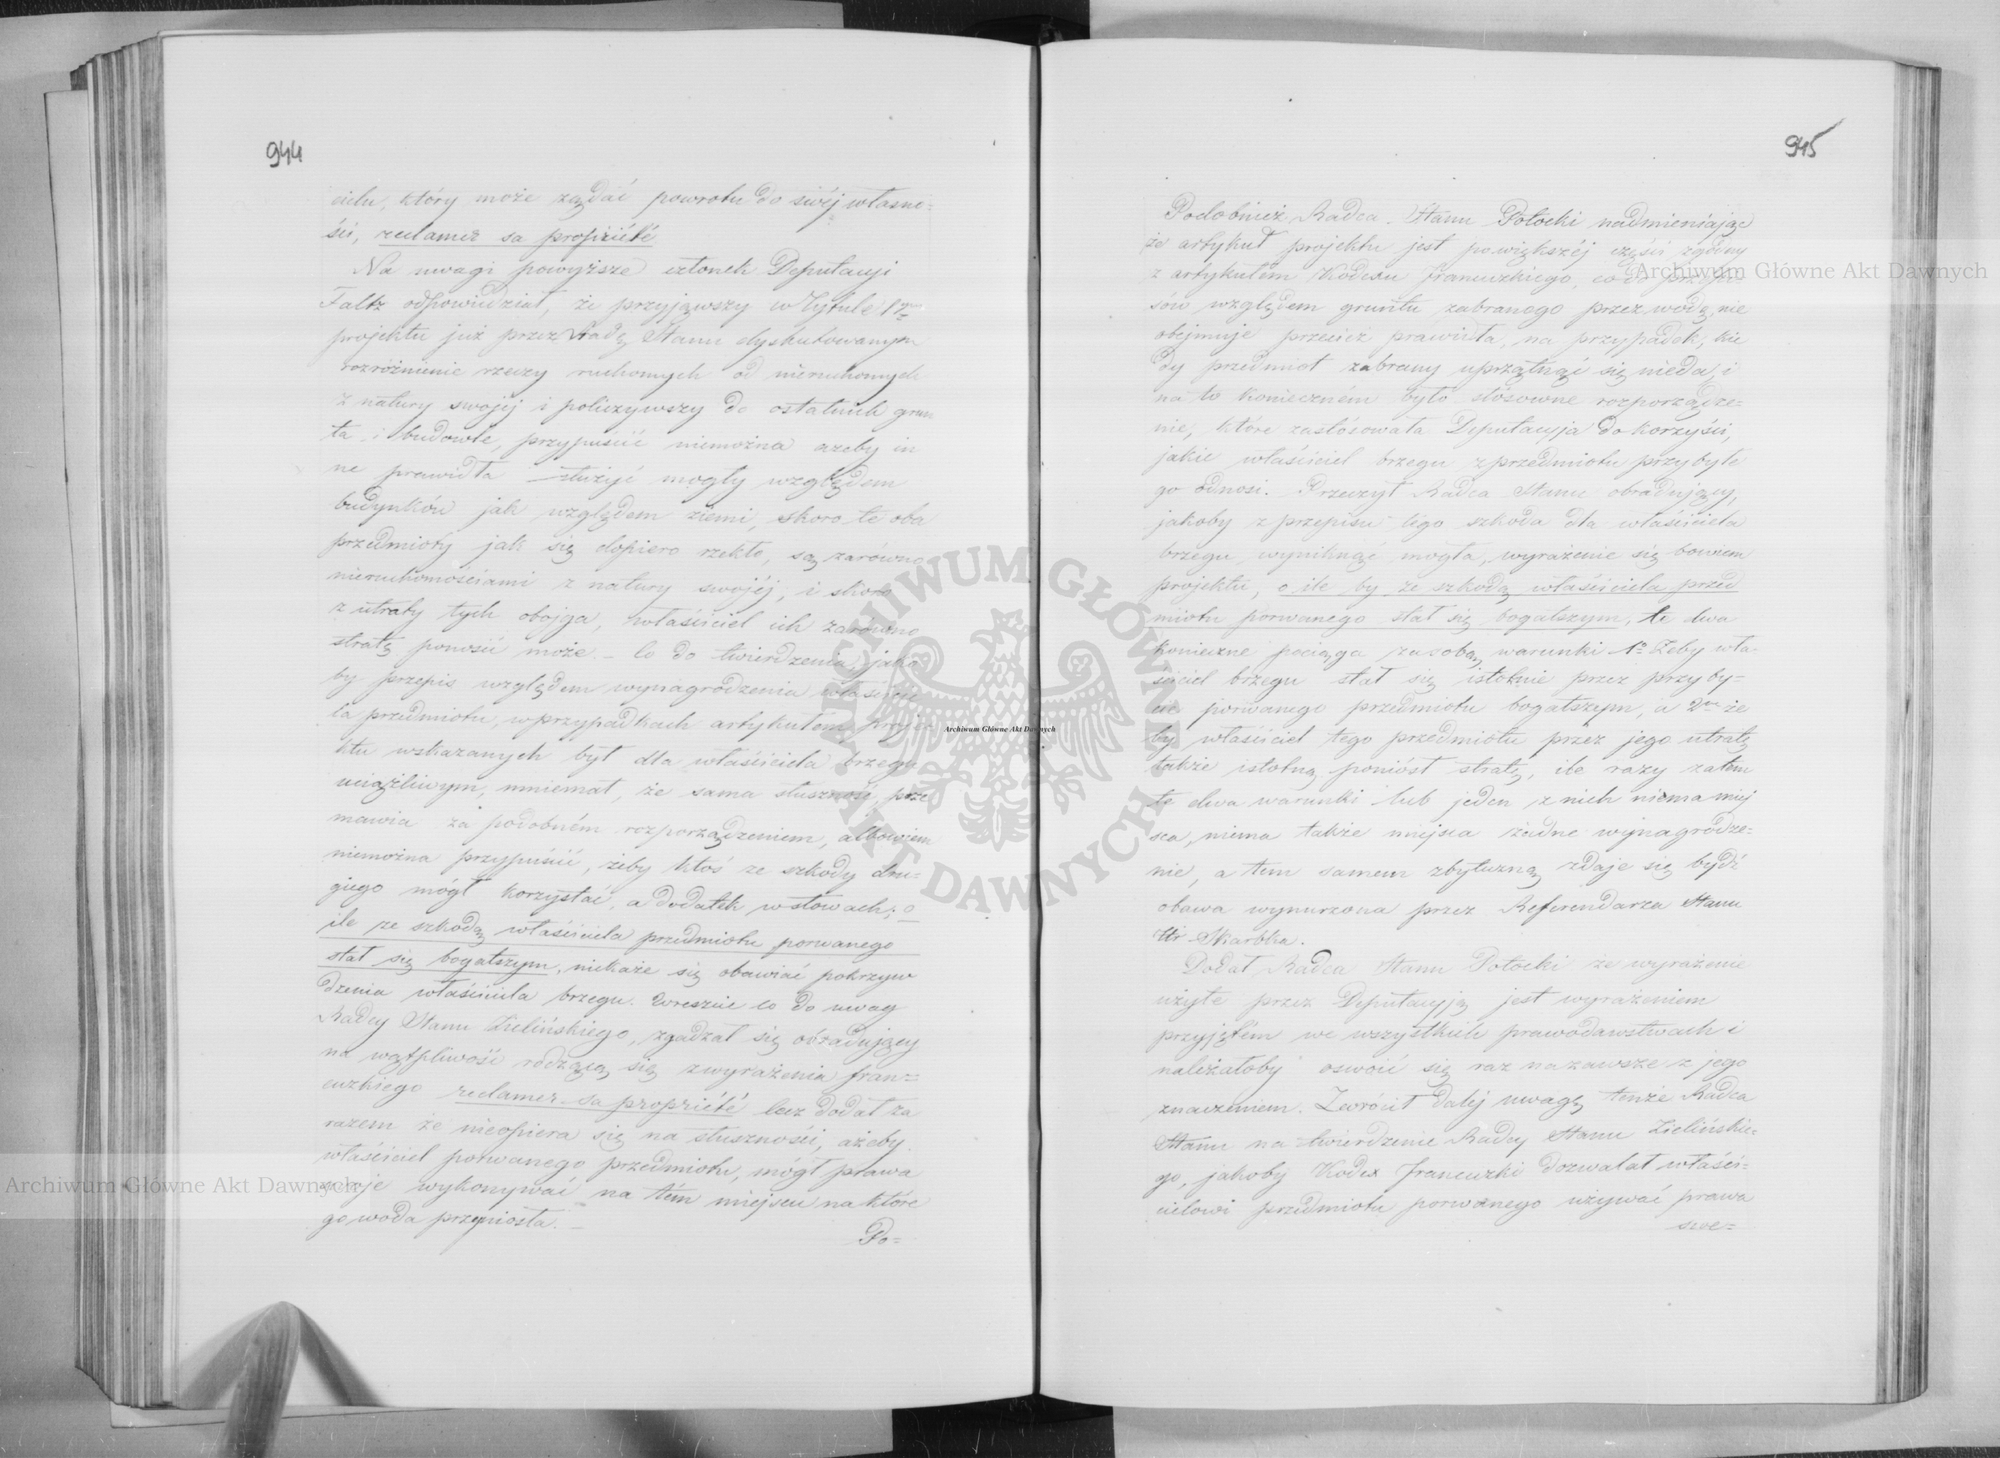 944
cielu, który może żądać powrotu do swéj własno=
ści, reclamer sa propriété
Na uwagi powyższe członek Deputacyi
Faltz odpowiedział, że przyjąwszy w Tytule 1ym
projektu już przez Radę Stanu dyskutowanym
rozróżnienie rzeczy ruchomych od nieruchomych
z natury swojéj i policzywszy do ostatnich grun
ta i budowle, przypuścić niemożna azeby in
ne prawidła służyć mogły względem
budynków jak względem ziemi, skoro te oba
przedmioty jak się dopiero rzekło, są zarówno
nieruchomościami z natury swojéj, i skoro
z utraty tych obojga, właściciel ich zarówno
stratę ponosić może. – Co do twierdzenia, jako
by przepis względem wynagrodzenia właścicie
la przedmiotu, w przypadkach artykułem proje
ktu wskazanych był dla właściciela brzegu
uciążliwym, mniemał, że sama słuszność prze
mawia za podobném rozporządzeniem, albowiem
niemożna przypuścić, żeby ktoś ze szkody dru=
giego mógł korzystać, a dodatek w słowach; o
ile ze szkodą właściciela przedmiotu porwanego
stał się bogatszym, niekaże się obawiać pokrzyw
dzenia właściciela brzegu. Wreszcie co do uwag
Radcy Stanu Zielińskiego, zgadzał się obradujący
na wątpliwość rodzącą się z wyrażenia fran=
cuzkiego reclamer sa propriété lecz dodał za
razem że nieopiera się na słuszności, ażeby
właściciel porwanego przedmiotu, mógł prawa
swoje wykonywać na tém miejscu na które
go woda przyniosła. –
Po=
945
Podobnież Radca Stanu Potocki nadmieniając
że artykuł projektu jest po większéj części zgodny
z artykułem Kodexu Francuzkiego, co do przepi=
sów względem gruntu zabranego przez wodę, nie
obejmuje przecież prawidła, na przypadek, kie
dy przedmiot zabrany uprzątnąć się nieda, i
na to konieczném było stosowne rozporządze=
nie, które zastósowała Deputacyja do korzyści,
jakie właściciel brzegu z przedmiotu przybyłe
go odnosi. Przeczył Radca Stanu obradujący,
jakoby z przepisu tego szkoda dla właściciela
brzegu wyniknąć mogła, wyrażenie się bowiem
projektu, o ile by ze szkodą właściciela przed
miotu porwanego stał się bogatszym, te dwa
konieczne pociąga za sobą warunki 1o Żeby wła=
ściciel brzegu stał się istotnie przez przyby=
cie porwanego przedmiotu bogatszym, a 2re że
by właściciel tego przedmiotu przez jego utratę
także istotną poniósł stratę, ile razy zatem
te dwa warunki lub jeden z nich niema miej
sca, niema także miejsca żadne wynagrodze=
nie, a tem samem zbyteczną zdaje się bydź
obawa wynurzona przez Referendarza Stanu
Hr Skarbka.
Dodał Radca Stanu Potocki że wyrażenie
użyte przez Deputacyją jest wyrażeniem
przyjętém we wszystkich prawodawstwach i
należałoby oswoić się raz na zawsze z jego
znaczeniem. Zwrócił daléj uwagę tenże Radca
Stanu na twierdzenie Radcy Stanu Zielińskie=
go, jakoby Kodex Francuzki dozwalał właści=
cielowi przedmiotu porwanego używać prawa
swe=
Archiwum Główne Akt Dawnych
Archiwum Główne Akt Dawnych
Archiwum Główne Akt Dawnych
ARCHIWUM GŁÓWNE AKT DAWNYCH